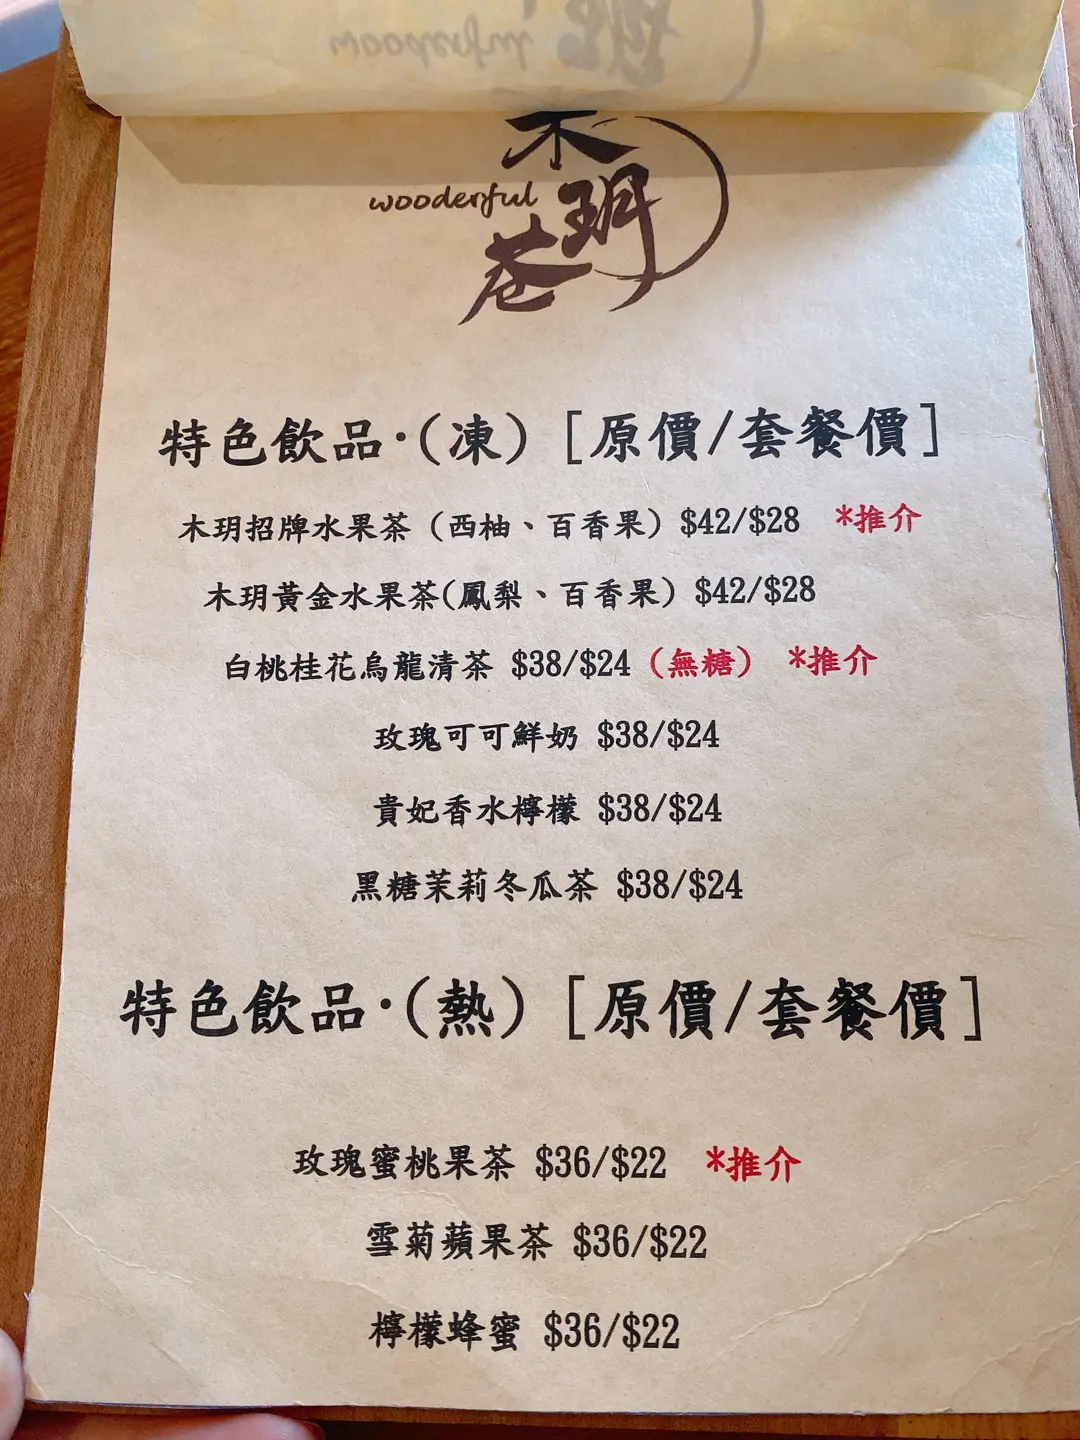 木玥巷
wooderful
特色飲品·(凍) [原價/套餐價]
木玥招牌水果茶 (西柚、百香果) $42/$28 *推介
木玥黃金水果茶(鳳梨、百香果) $42/$28
白桃桂花烏龍清茶 $38/$24 (無糖) *推介
玫瑰可可鮮奶 $38/$24
貴妃香水檸檬 $38/$24
黑糖茉莉冬瓜茶 $38/$24
特色飲品·(熱) [原價/套餐價]
玫瑰蜜桃果茶 $36/$22 *推介
雪菊蘋果茶 $36/$22
檸檬蜂蜜 $36/$22